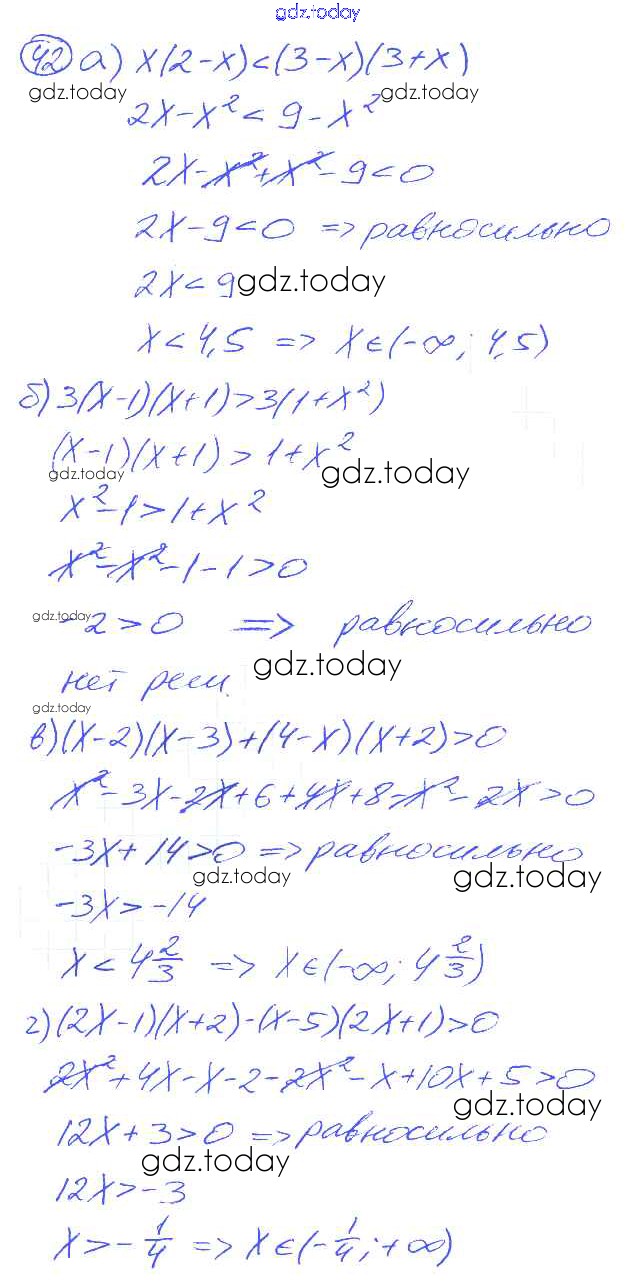 gdz.today
42 а) x(2-x)<(3-x)(3+x)
gdz.today gdz.today
2x-x²<9-x²
2x-x²+x²-9<0
2x-9<0 => равносильно
2x<9 gdz.today
x<4,5 => x∈(-∞; 4,5)
б) 3(x-1)(x+1)>3(1+x²)
(x-1)(x+1)>1+x²
gdz.today gdz.today
x²-1>1+x²
x²-x²-1-1>0
gdz.today
-2>0 => равносильно
gdz.today
нет реш.
gdz.today
в) (x-2)(x-3)+(4-x)(x+2)>0
x²-3x-2x+6+4x+8-x²-2x>0
-3x+14>0 => равносильно
gdz.today gdz.today
-3x>-14
x<4 2/3 => x∈(-∞; 4 2/3)
г) (2x-1)(x+2)-(x-5)(2x+1)>0
2x²+4x-x-2-2x²-x+10x+5>0
gdz.today
12x+3>0 => равносильно
gdz.today
12x>-3
x>-1/4 => x∈(-1/4; +∞)